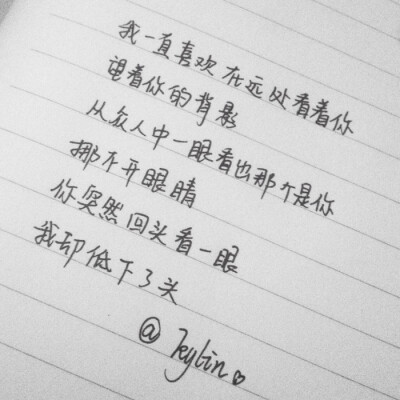 我一直喜欢在远处看着你
望着你的背影
从众人中一眼看出那个是你
挪不开眼睛
你突然回头看一眼
我却低下了头
@Keylin